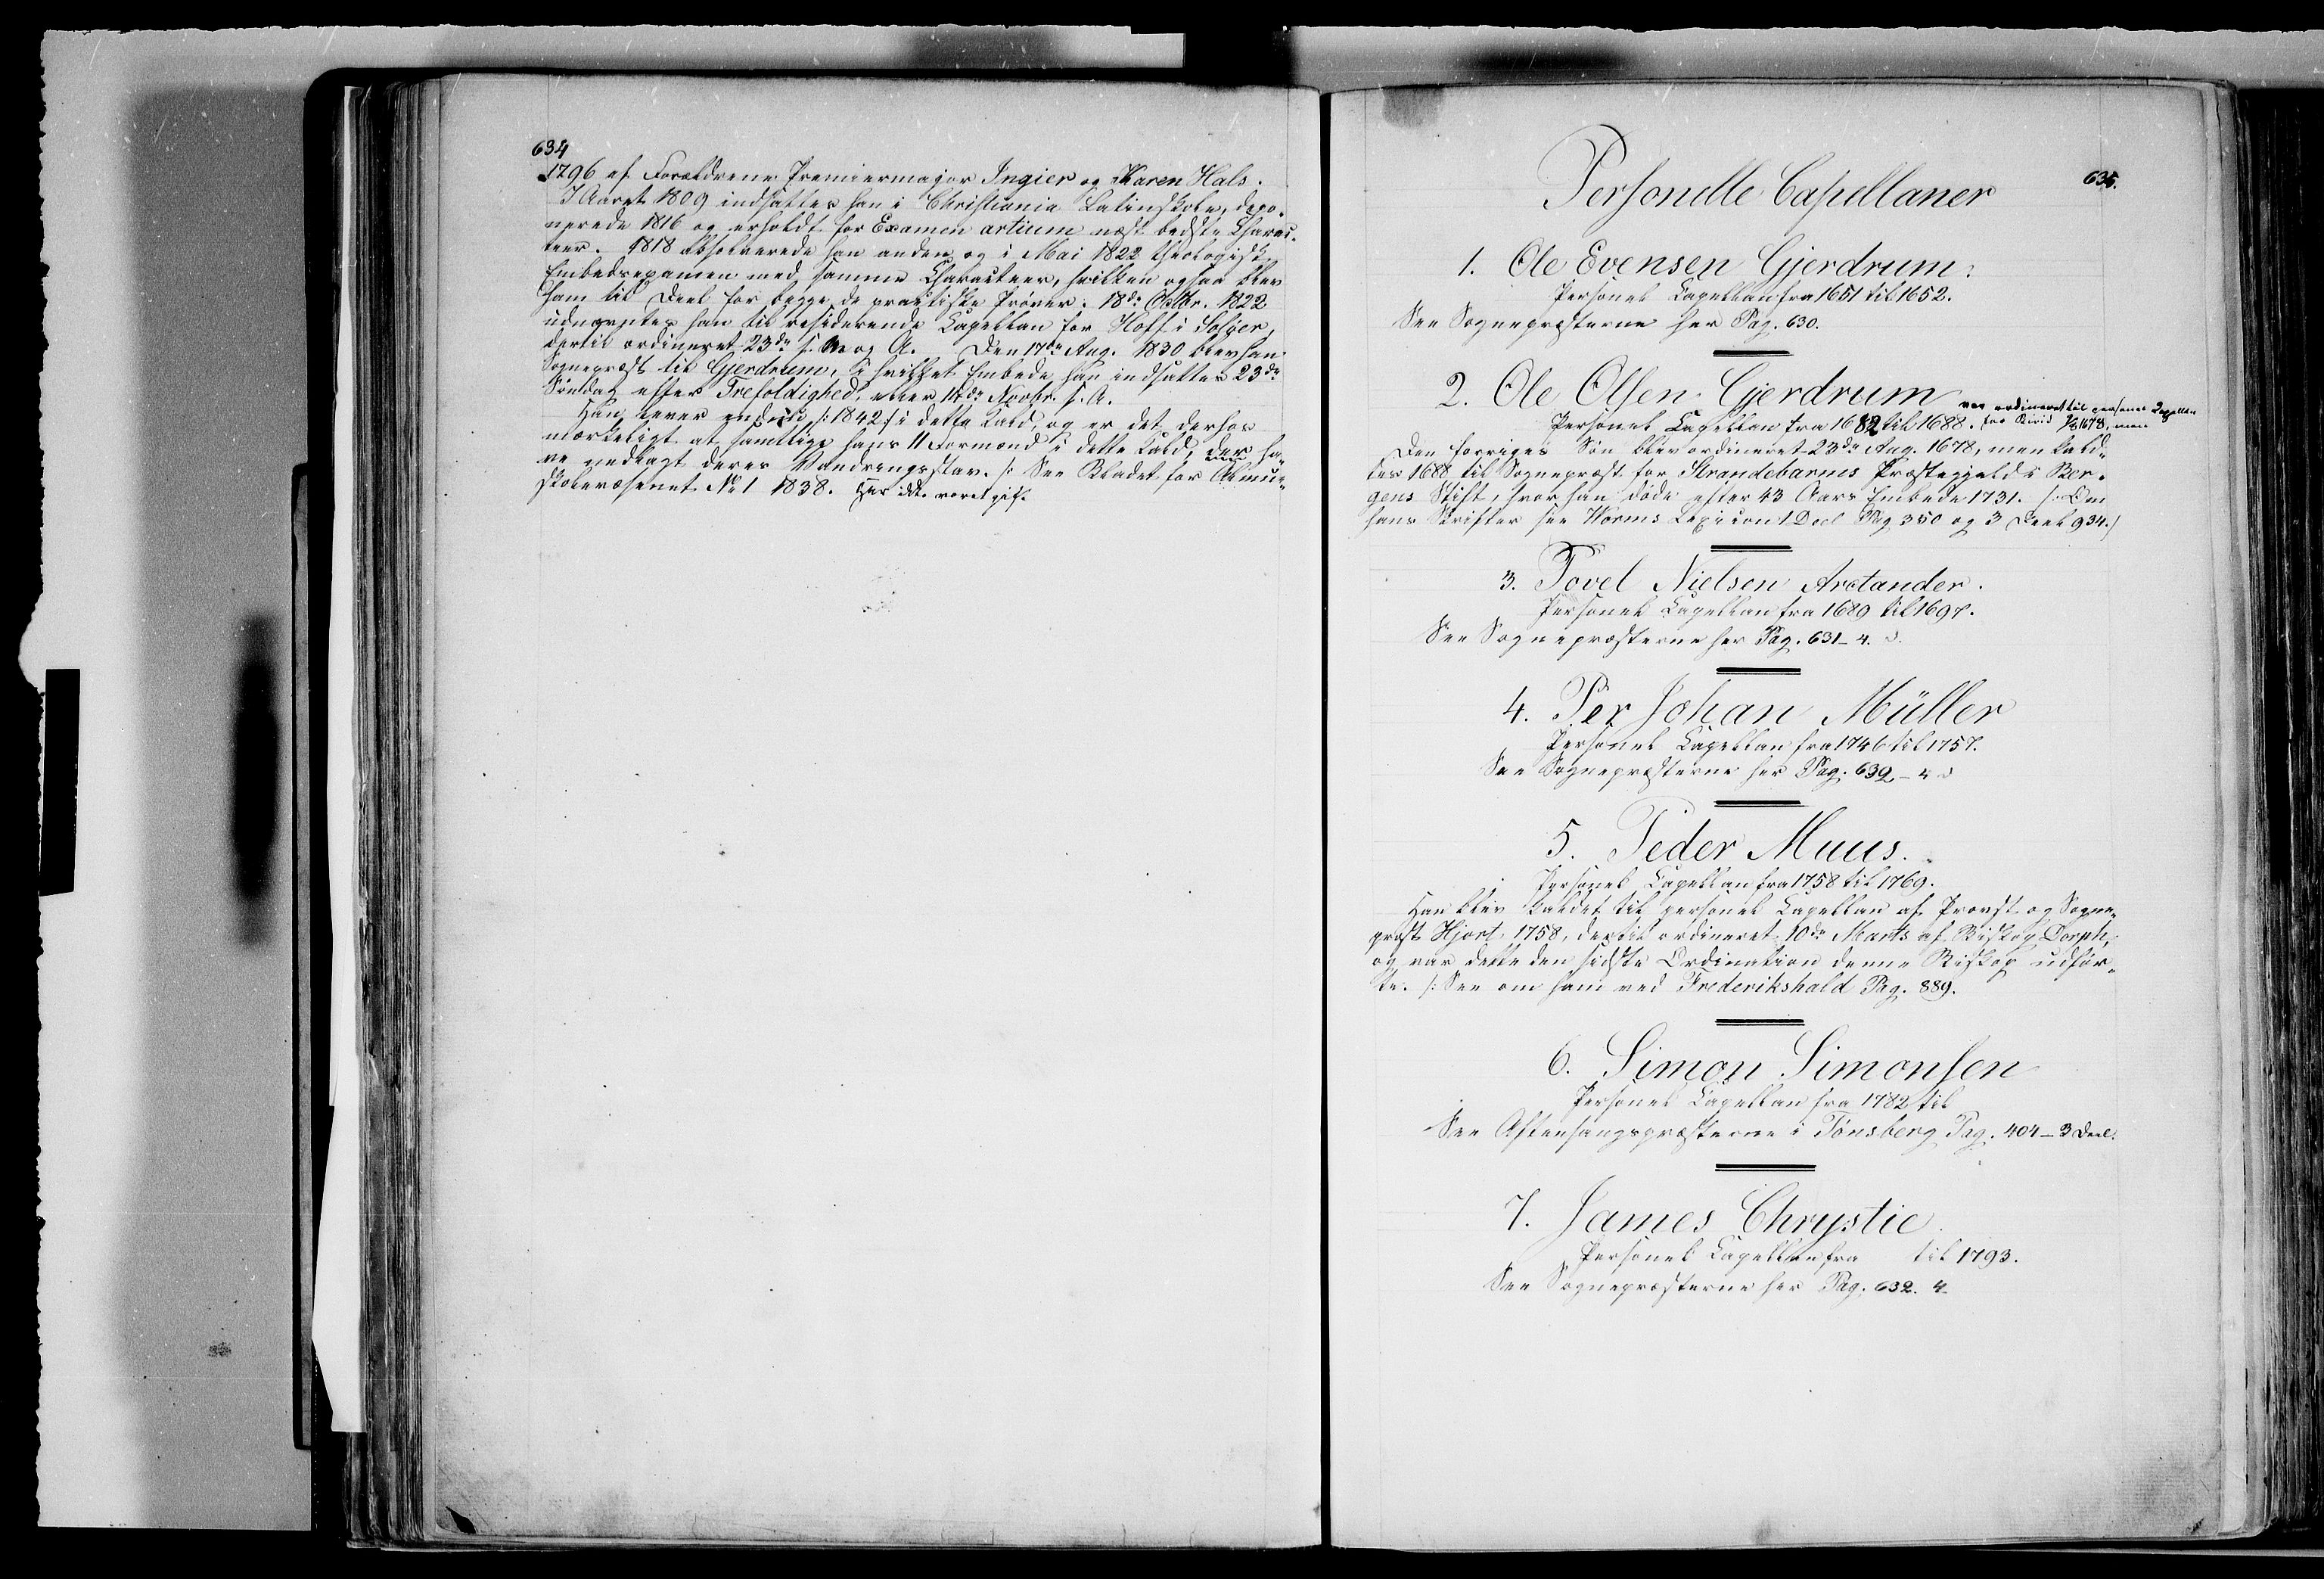 634
1796 af Forældrene Premiermajor Ingier og Karen Hals.
I Aaret 1809 indsattes han i Christiania Latinskole, depo-
nerede 1816 og erholdt for Examen artium næst bedste Charac-
teer. 1818 absolverede han anden og i Mai 1822 theologisk
Embedsexamen med samme Characteer, hvilken ogsaa blev
ham til Deel for begge de practiske Prøver. 18de Octbr. 1822
udnævntes han til residerende Capellan for Hoff i Soløer,
dertil ordineret 23de s. M. og A. Den 17de Aug. 1830 blev han
Sognepræst til Gjerdrum, i hvilket Embede han indsattes 23de
Søndag efter Trefoldighed, eller 14de Novbr. s. A.
Han lever endnu /: 1842 :/ i dette Kald, og er det derhos
mærkeligt at samtlige hans 11 Formænd i dette Kald, der ha-
ve nedlagt deres Vandringsstav. /: See Bladet for Almue-
skolevæsenet No 1 1838. Har ikke været gift.
635.
Personelle Capellaner
1. Ole Evensen Gjerdrum.
Personel Capellan fra 1651 til 1652.
See Sognepræsterne her Pag. 630.
2. Ole Olsen Gjerdrum
var ordineret til personel Capellan
Personel Capellan fra 1682 til 1688. for 1678, men
Den forriges Søn blev ordineret 23de Aug. 1678, men kald-
tes 1688 til Sognepræst for Strandebarms Præstegjeld i Ber-
gens Stift, hvor han døde efter 43 Aars Embede 1731. /: Om
hans Skrifter see Worms Lexicon 1 Deel Pag 350 og 3 Deel 934. /
3. Povel Nielsen Arctander.
Personel Capellan fra 1689 til 1697.
See Sognepræsterne her Pag. 631_4.
4. Per Johan Müller
Personel Capellan fra 1746 til 1757.
See Sognepræsterne her Pag. 632_4
5. Peder Muus.
Personel Capellan fra 1758 til 1769.
Han blev kaldet til personel Capellan af Provst og Sogne-
præst Hjort 1758, dertil ordineret 10de Marts af Biskop Dorph,
og var dette den sidste Ordination denne Biskop udfør-
te. /: See om ham ved Frederikshald Pag. 889.
6. Simon Simonsen
Personel Capellan fra 1782 til
See Aftensangspræsterne i Tønsberg Pag. 404_3 Deel.
7. James Chrystie.
Personel Capellan fra til 1793.
See Sognepræsterne her Pag. 632. 4